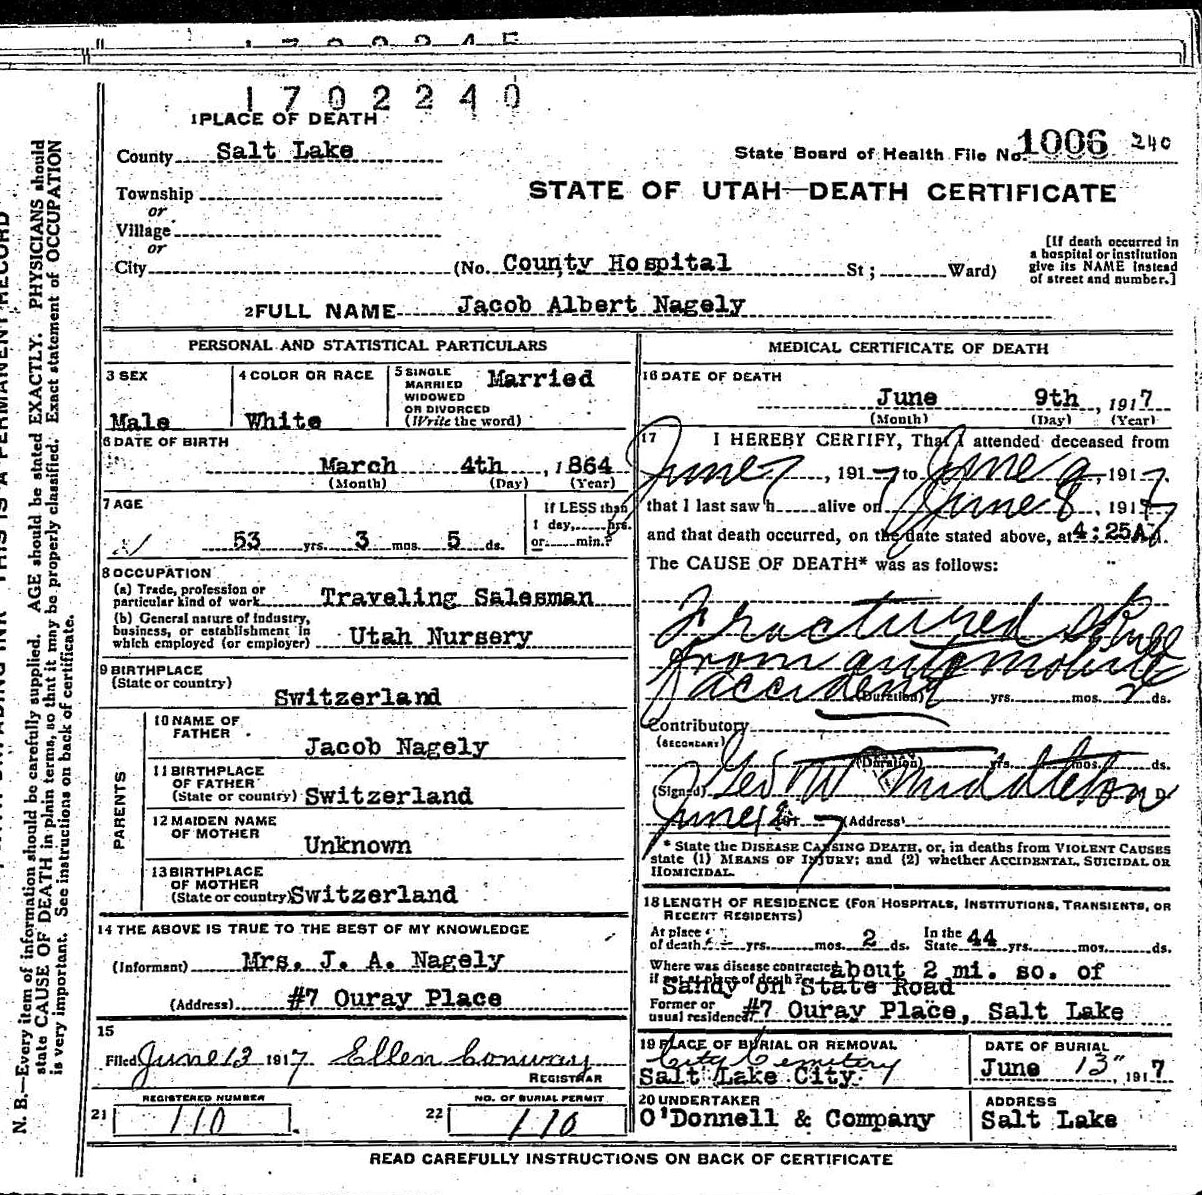 1702240
1 PLACE OF DEATH
County Salt Lake
State Board of Health File No. 1006 240
Township
or
Village
or
City
STATE OF UTAH—DEATH CERTIFICATE
(No. County Hospital St; Ward)
[If death occurred in
a hospital or institution
give its NAME instead
of street and number.]
2 FULL NAME Jacob Albert Nagely
PERSONAL AND STATISTICAL PARTICULARS
3 SEX
Male
4 COLOR OR RACE
White
5 SINGLE
MARRIED
WIDOWED
OR DIVORCED
(Write the word)
Married
6 DATE OF BIRTH
March 4th, 1864
(Month) (Day) (Year)
7 AGE
53 yrs. 3 mos. 5 ds.
If LESS than
1 day, hrs.
or min.?
8 OCCUPATION
(a) Trade, profession or
particular kind of work Traveling Salesman
(b) General nature of industry,
business, or establishment in
which employed (or employer) Utah Nursery
9 BIRTHPLACE
(State or country)
Switzerland
PARENTS
10 NAME OF
FATHER
Jacob Nagely
11 BIRTHPLACE
OF FATHER
(State or country) Switzerland
12 MAIDEN NAME
OF MOTHER
Unknown
13 BIRTHPLACE
OF MOTHER
(State or country) Switzerland
14 THE ABOVE IS TRUE TO THE BEST OF MY KNOWLEDGE
(Informant) Mrs. J. A. Nagely
(Address) #7 Ouray Place
15
Filed June 13 1917 Ellen Conway
REGISTRAR
REGISTERED NUMBER
21 110
NO. OF BURIAL PERMIT
22 110
MEDICAL CERTIFICATE OF DEATH
16 DATE OF DEATH
June 9th, 1917
(Month) (Day) (Year)
17 I HEREBY CERTIFY, That I attended deceased from
June 7, 1917 to June 9, 1917,
that I last saw h alive on June 8, 1917
and that death occurred, on the date stated above, at 4:25A M.
The CAUSE OF DEATH* was as follows:
Fractured Skull
from automobile
accident (Duration) yrs. mos. 2 ds.
Contributory
(SECONDARY)
(Duration) yrs. mos. ds.
(Signed) Geo W Middleton D
June 12 191 7 (Address)
* State the DISEASE CAUSING DEATH, or, in deaths from VIOLENT CAUSES
state (1) MEANS OF INJURY; and (2) whether ACCIDENTAL, SUICIDAL OR
HOMICIDAL.
18 LENGTH OF RESIDENCE (FOR HOSPITALS, INSTITUTIONS, TRANSIENTS, OR
RECENT RESIDENTS)
At place
of death yrs. mos. 2 ds. In the State 44 yrs. mos. ds.
Where was disease contracted about 2 mi. so. of
if not at place of death? Sandy on State Road
Former or
usual residence #7 Ouray Place, Salt Lake
19 PLACE OF BURIAL OR REMOVAL
City Cemetery
Salt Lake City
DATE OF BURIAL
June 13", 1917
20 UNDERTAKER
O'Donnell & Company
ADDRESS
Salt Lake
READ CAREFULLY INSTRUCTIONS ON BACK OF CERTIFICATE
N. B.—Every item of information should be carefully supplied. AGE should be stated EXACTLY. PHYSICIANS should
state CAUSE OF DEATH in plain terms, so that it may be properly classified. Exact statement of OCCUPATION
is very important. See instructions on back of certificate.